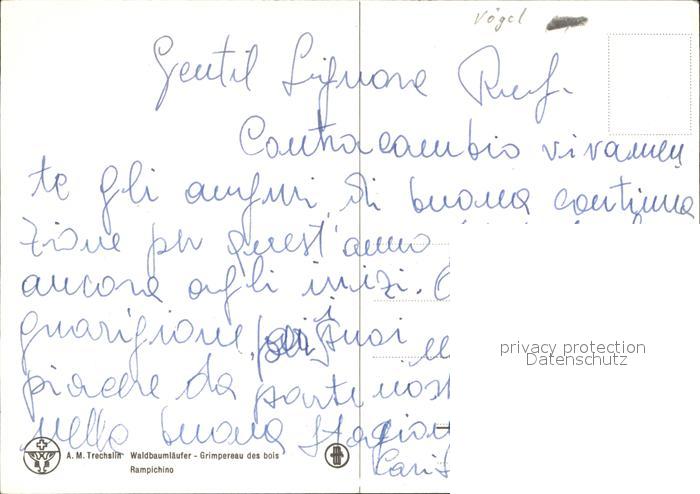 Vögel
Gentil Signora Ruf.
Contracambio vivamen
te gli auguri di buona continua
zione per quest'anno
ancora agli inizi.
guarigione suoi
piacere da parte nost
nella buona stagion
A. M. Trechslin Waldbaumläufer - Grimpereau des bois
Rampichino
privacy protection
Datenschutz